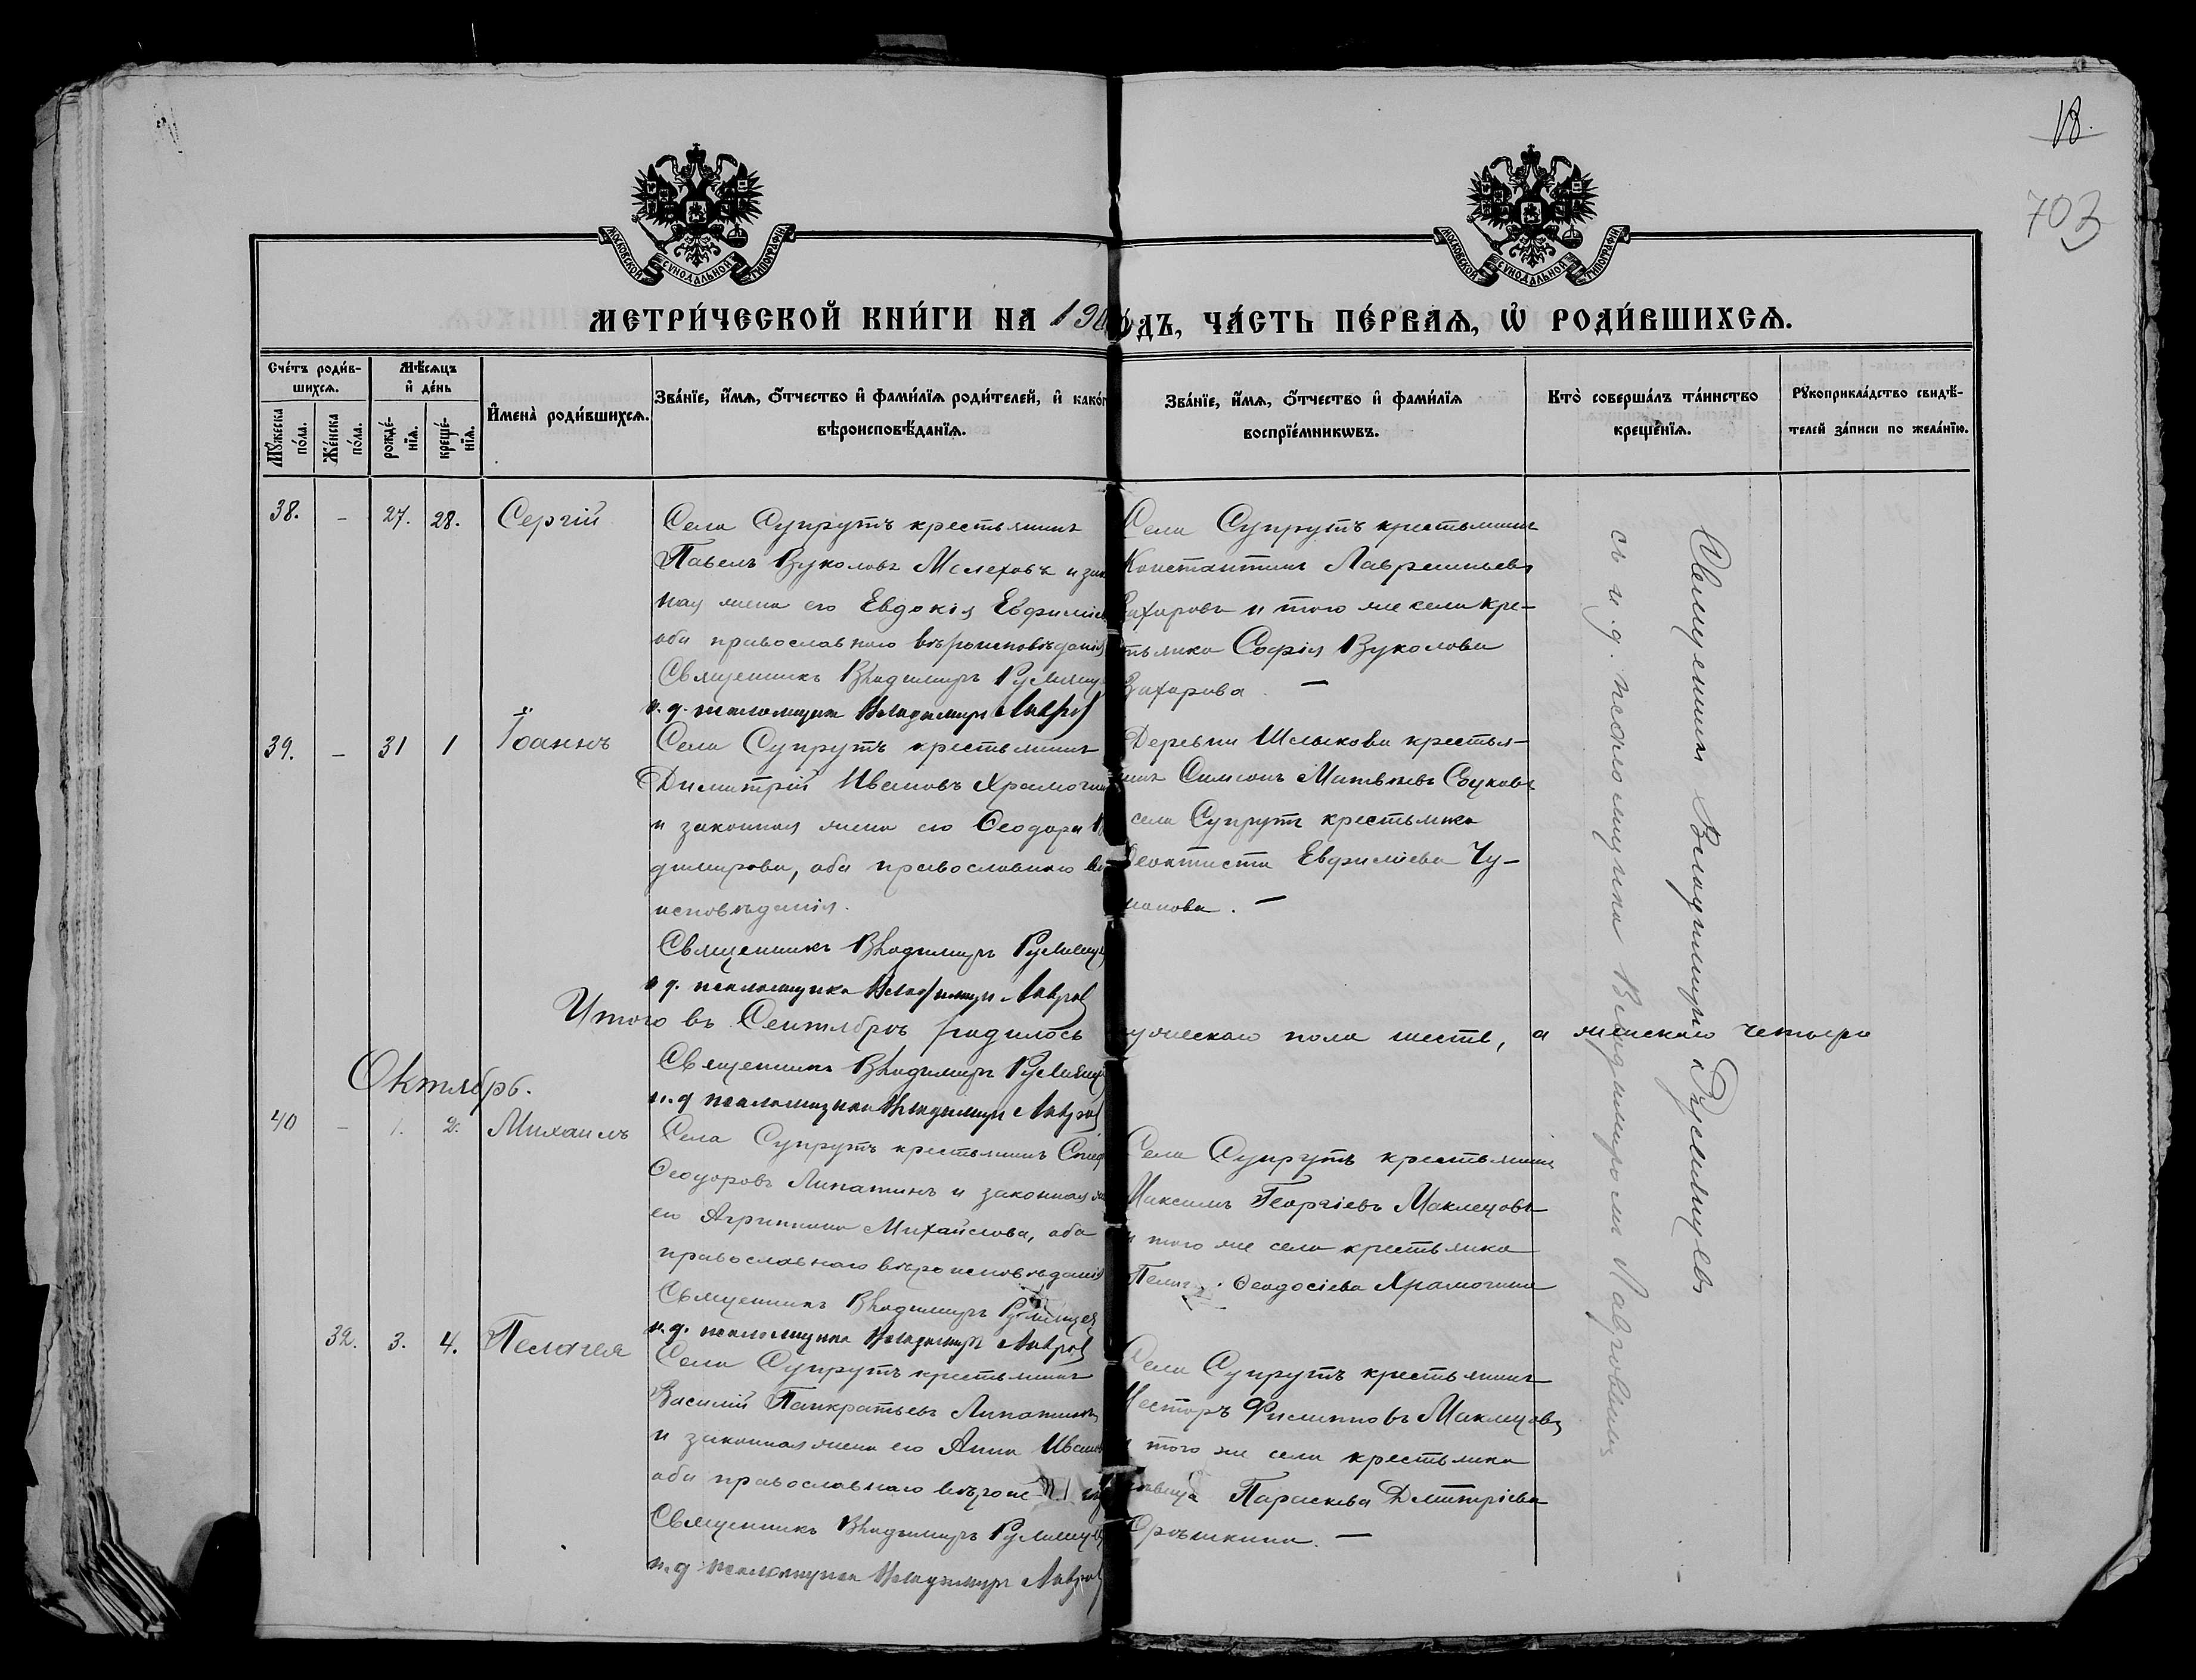 18.
703
МОСКОВСКОЙ СѴНОДАЛЬНОЙ ТИПОГРАФІИ
МОСКОВСКОЙ СѴНОДАЛЬНОЙ ТИПОГРАФІИ
МЕТРИ́ЧЕСКОЙ КНИ́ГИ НА 19
ДЪ, ЧА́СТЬ ПЕ́РВАЯ, Ѡ҆ РОДИ́ВШИХСЯ.
Сче́тъ роди́в-
шихся.
Мꙋ́жеска по́ла.
Же́нска по́ла.
Мѣ́сяцъ и҆ де́нь
рожде́-нїя.
креще́-нїя.
И҆мена̀ роди́вшихся.
Зва́нїе, и҆́мя, ѻ҆́тчество и҆ фами́лїя роди́телей, и҆ како́г
вѣроисповѣ́данїя.
Зва́нїе, и҆́мя, ѻ҆́тчество и҆ фами́лїя
воспрїе́мникѡвъ.
Кто̀ соверша́лъ та́инство
креще́нїя.
Рꙋкоприкла́дство свидѣ́-
телей за́писи по жела́нїю.
38. - 27. 28. Сергій
Села Супрутъ крестьянинъ
Павелъ Вуколовъ Мелеховъ и зак
ная жена его Евдокія Евфиміе
оба православнаго вѣроисповѣданія
Священникъ Владиміръ Румянце
и. д. псаломщика Владимиръ Лавров
Села Супрутъ крестьянинъ
Константинъ Лаврентьевъ
Захаровъ и того же села кре-
стьянка Софія Вуколова
Захарова. —
39. - 31 1 Іоаннъ
Села Супрутъ крестьянинъ
Димитрій Ивановъ Храмогин
и законная жена его Ѳеодора В
димирова, оба православнаго вѣ
исповѣданія.
Священникъ Владиміръ Румянце
и д. псаломщика Владимиръ Лавров
Деревни крестья-
нинъ Симеонъ Матвѣевъ
села Супрутъ крестьянка
Ѳеоктиста Евфиміева Чу-
канова. —
Итого въ Сентябрѣ родилось
мужескаго пола шесть, а женскаго четыре
Священникъ Владиміръ Румянце
и. д псаломщика Владимиръ Лавров
Октябрь.
40 - 1. 2. Михаилъ
Села Супрутъ крестьянинъ
Ѳеодоровъ Липатинъ и законная ж
его Агриппина Михайлова, оба
православнаго вѣроисповѣданія
Священникъ Владиміръ Румянцев
и. д. псаломщика Владимиръ Лавров
Села Супрутъ крестьянинъ
Максимъ Георгіевъ Маклецовъ
и того же села крестьянка
Ѳеодосіева Храмогина
32. 3. 4. Пелагея
Села Супрутъ крестьянинъ
Василій Панкратьевъ Липатинъ
и законная жена его Анна Ивано
оба православнаго
Священникъ Владиміръ Румянцев
и. д псаломщика Владимиръ Лавров
Села Супрутъ крестьянинъ
Несторъ Филипповъ Маклецовъ
и того же села крестьянка
Параскева Дмитріева
Орѣшкина. —
Священникъ Владимиръ Румянцевъ
съ и. д. псаломщика Владимиромъ Лавровымъ